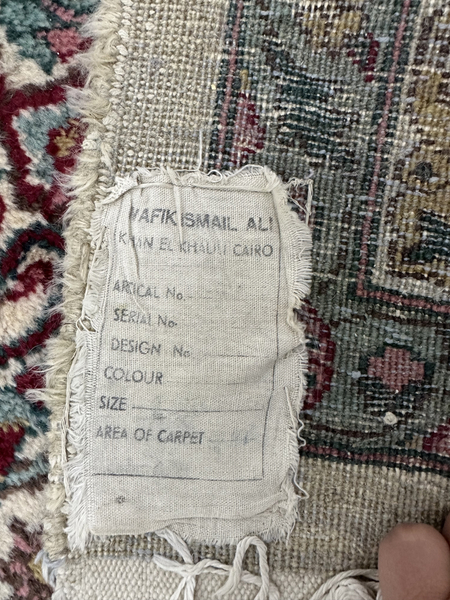 WAFIK ISMAIL ALI
KHAN EL KHALILI CAIRO
ARTICAL No.
SERIAL No.
DESIGN No.
COLOUR
SIZE
AREA OF CARPET